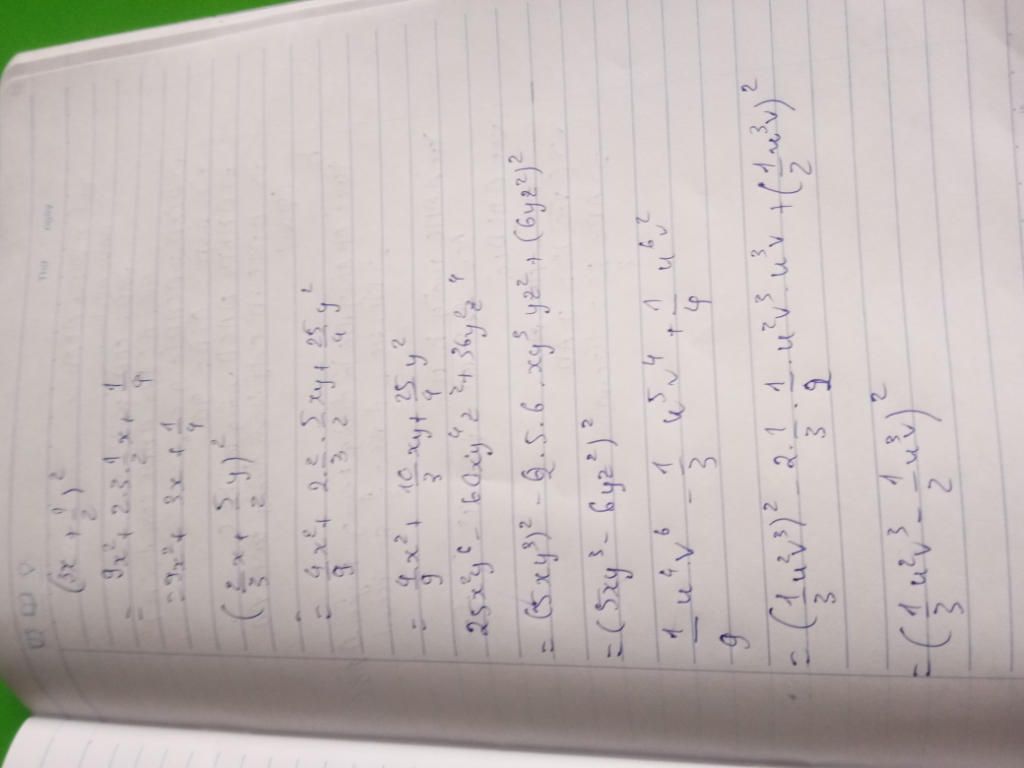 Thứ Ngày
(3x + 1/2)²
= 9x² + 2.3.1/2x + 1/4
= 9x² + 3x + 1/4
(2/3x + 5/2y)²
= 4/9x² + 2.2/3.5/2xy + 25/4y²
= 4/9x² + 10/3xy + 25/4y²
25x²y⁶ - 60xy⁴z² + 36y²z⁴
= (5xy³)² - 2.5.6.xy³yz² + (6yz²)²
= (5xy³ - 6yz²)²
1/9u⁴v⁶ - 1/3u⁵v⁴ + 1/4u⁶v²
= (1/3u²v³)² - 2.1/3.1/2.u²v³.u³v + (1/2u³v)²
= (1/3u²v³ - 1/2u³v)²